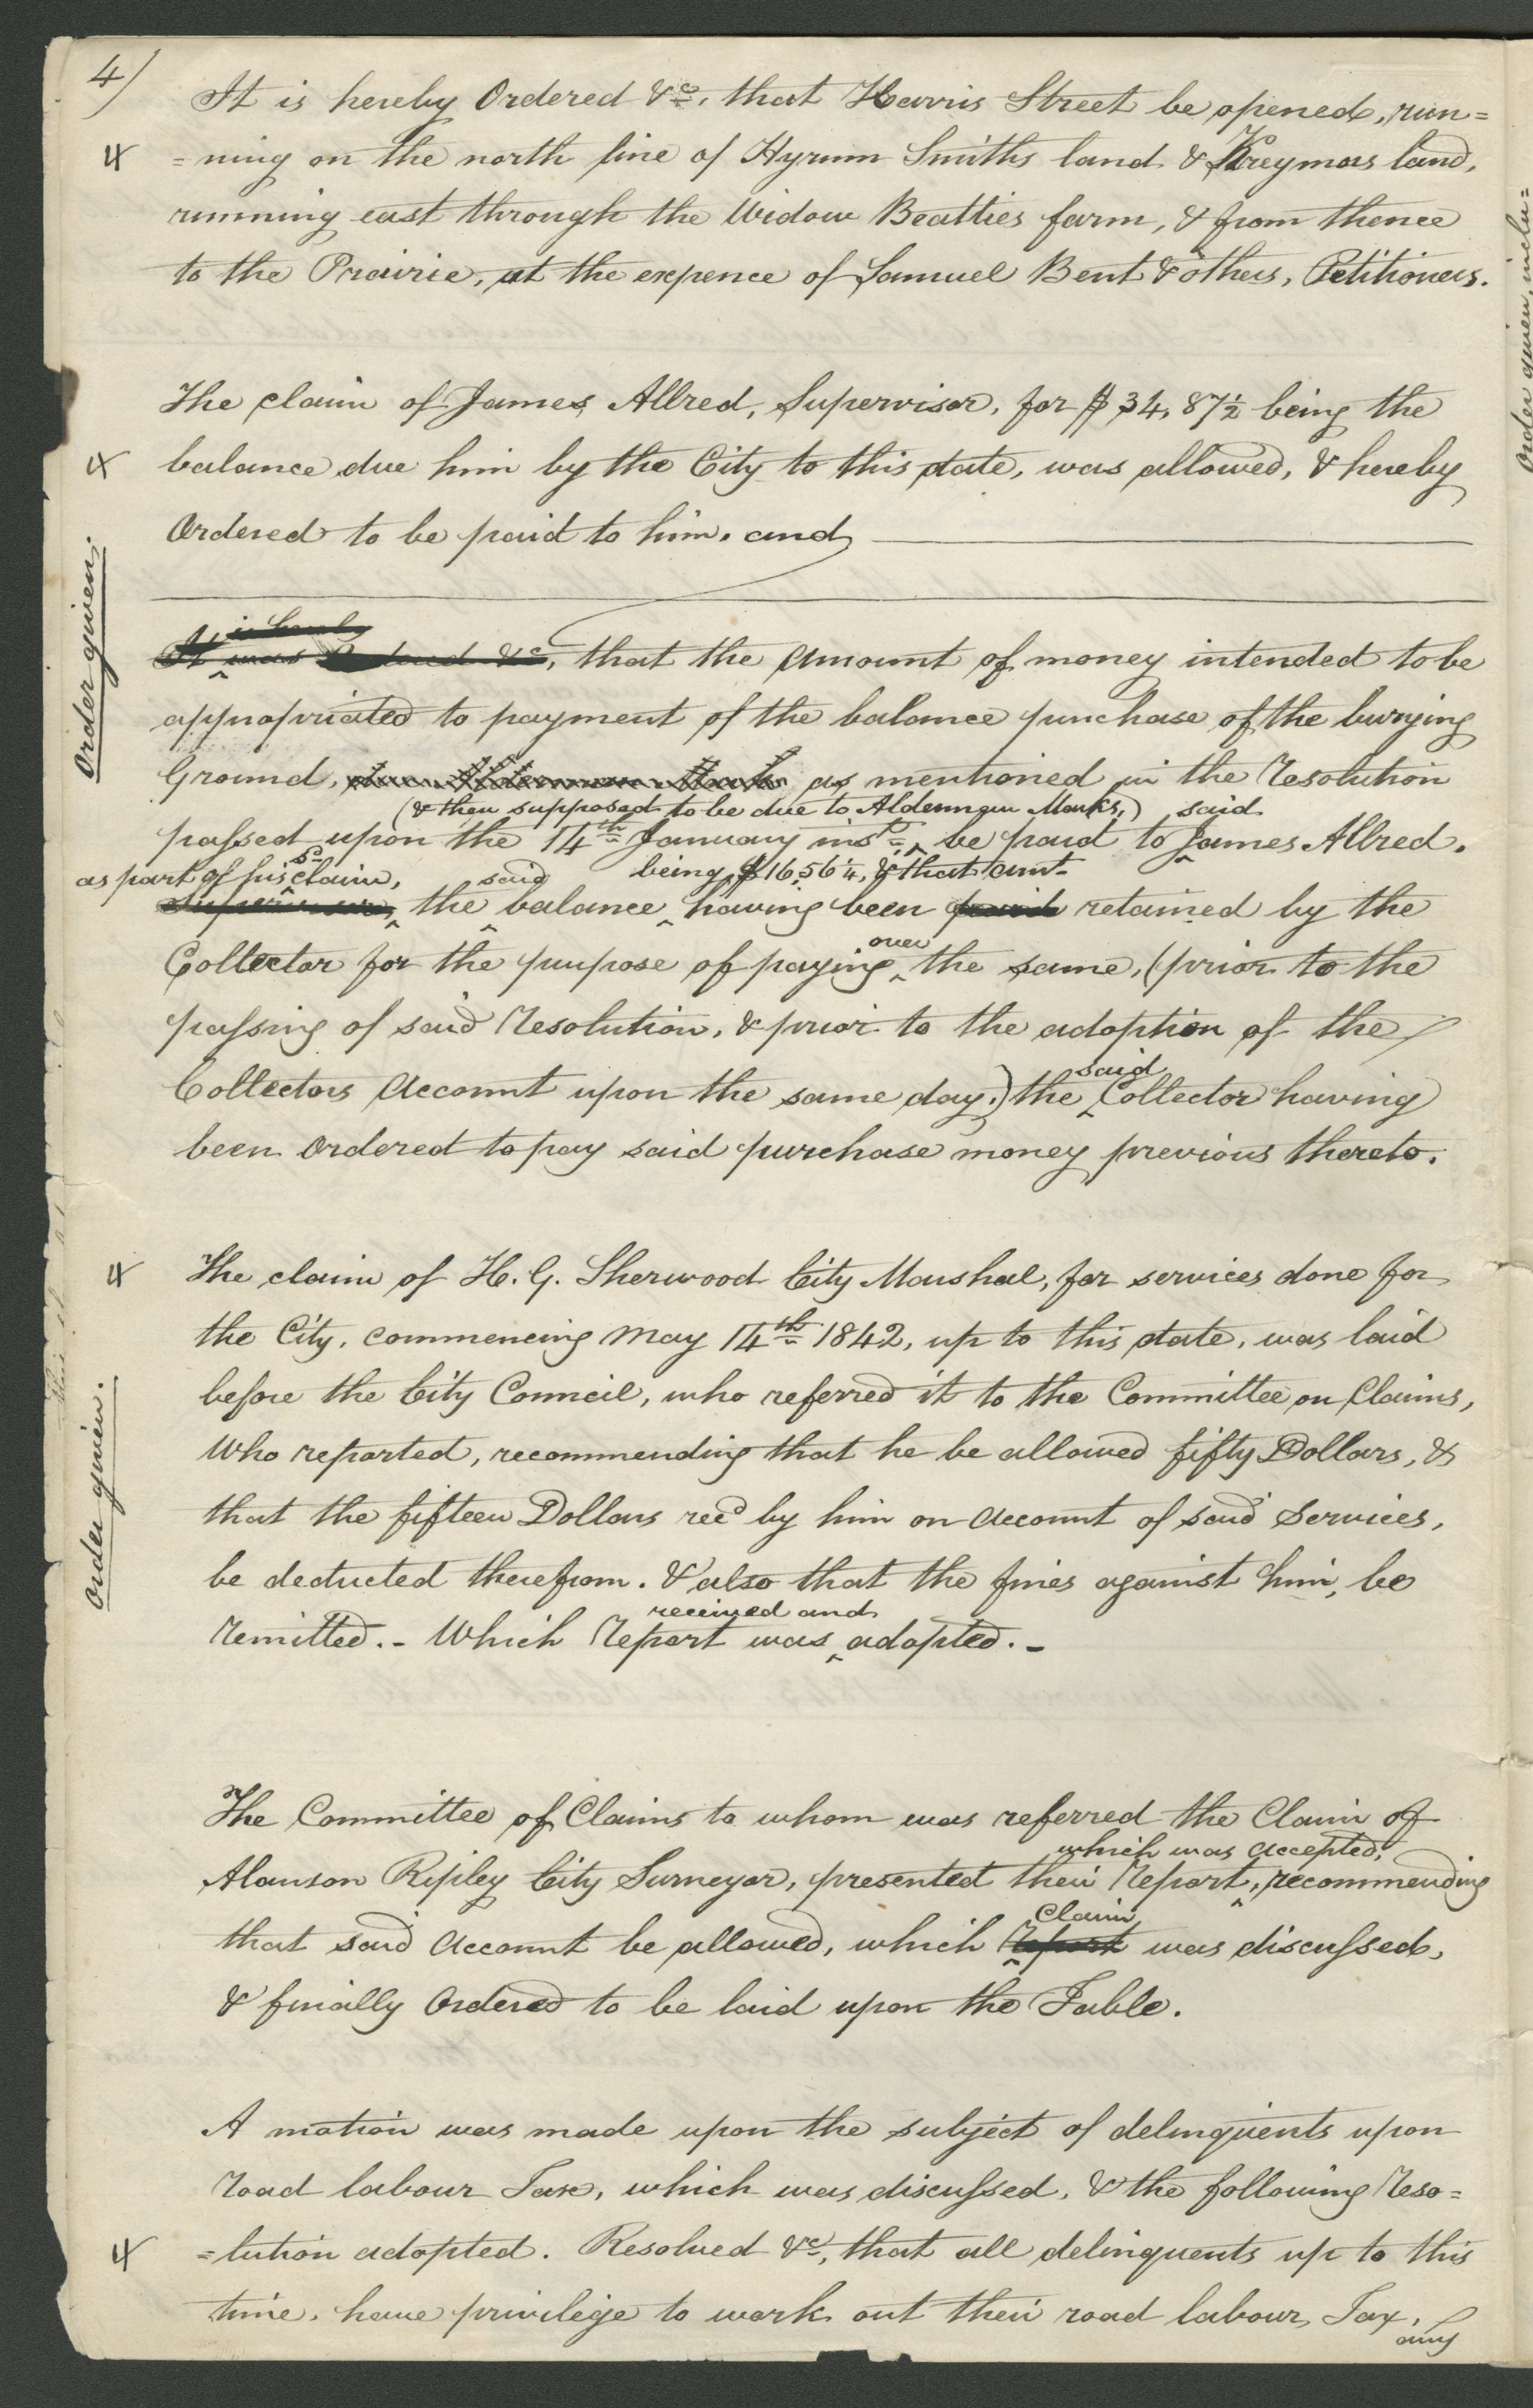 4)
It is hereby Ordered &c, that Harris Street be opened, run=
4
=ning on the north line of Hyrum Smiths land & Kreymors land,
running east through the Widow Beatties farm, & from thence
to the Prairie, at the expence of Samuel Bent & others, Petitioners.
The claim of James Allred, Supervisor, for $34,87½ being the
4
balance due him by the City to this date, was allowed, & hereby
Ordered to be paid to him. and
Order given.
is hereby
It was Ordered &c, that the Amount of money intended to be
appropriated to payment of the balance purchase of the burying
Ground, as mentioned in the Resolution
(& then supposed to be due to Alderman Marks,) said
passed upon the 14th January inst, be paid to James Allred.
as part of his sd claim, said being $16,56¼, & that amt
Supervisor, the balance having been paid retained by the
over
Collector for the purpose of paying the same, (prior to the
passing of said Resolution, & prior to the adoption of the
said
Collectors Account upon the same day.) the Collector having
been Ordered to pay said purchase money previous thereto.
4
The claim of H. G. Sherwood City Marshal, for services done for
the City, commencing May 14th 1842, up to this date, was laid
before the City Council, who referred it to the Committee on Claims,
Who reported, recommending that he be allowed fifty Dollars, &
Order given.
that the fifteen Dollars recd by him on Account of said Services,
be deducted therefrom. & also that the fines against him, be
received and
Remitted. - Which Report was adopted. -
The Committee of Claims to whom was referred the Claim of
which was accepted,
Alanson Ripley City Surveyor, presented their Report, recommending
Claim
that said Account be allowed, which Report was discussed,
& finally Ordered to be laid upon the Table.
A motion was made upon the subject of delinquents upon
road labour Tax, which was discussed, & the following Reso=
4
=lution adopted. Resolved &c, that all delinquents up to this
time, have privilege to work out their road labour Tax,
any
Order given, inclu=